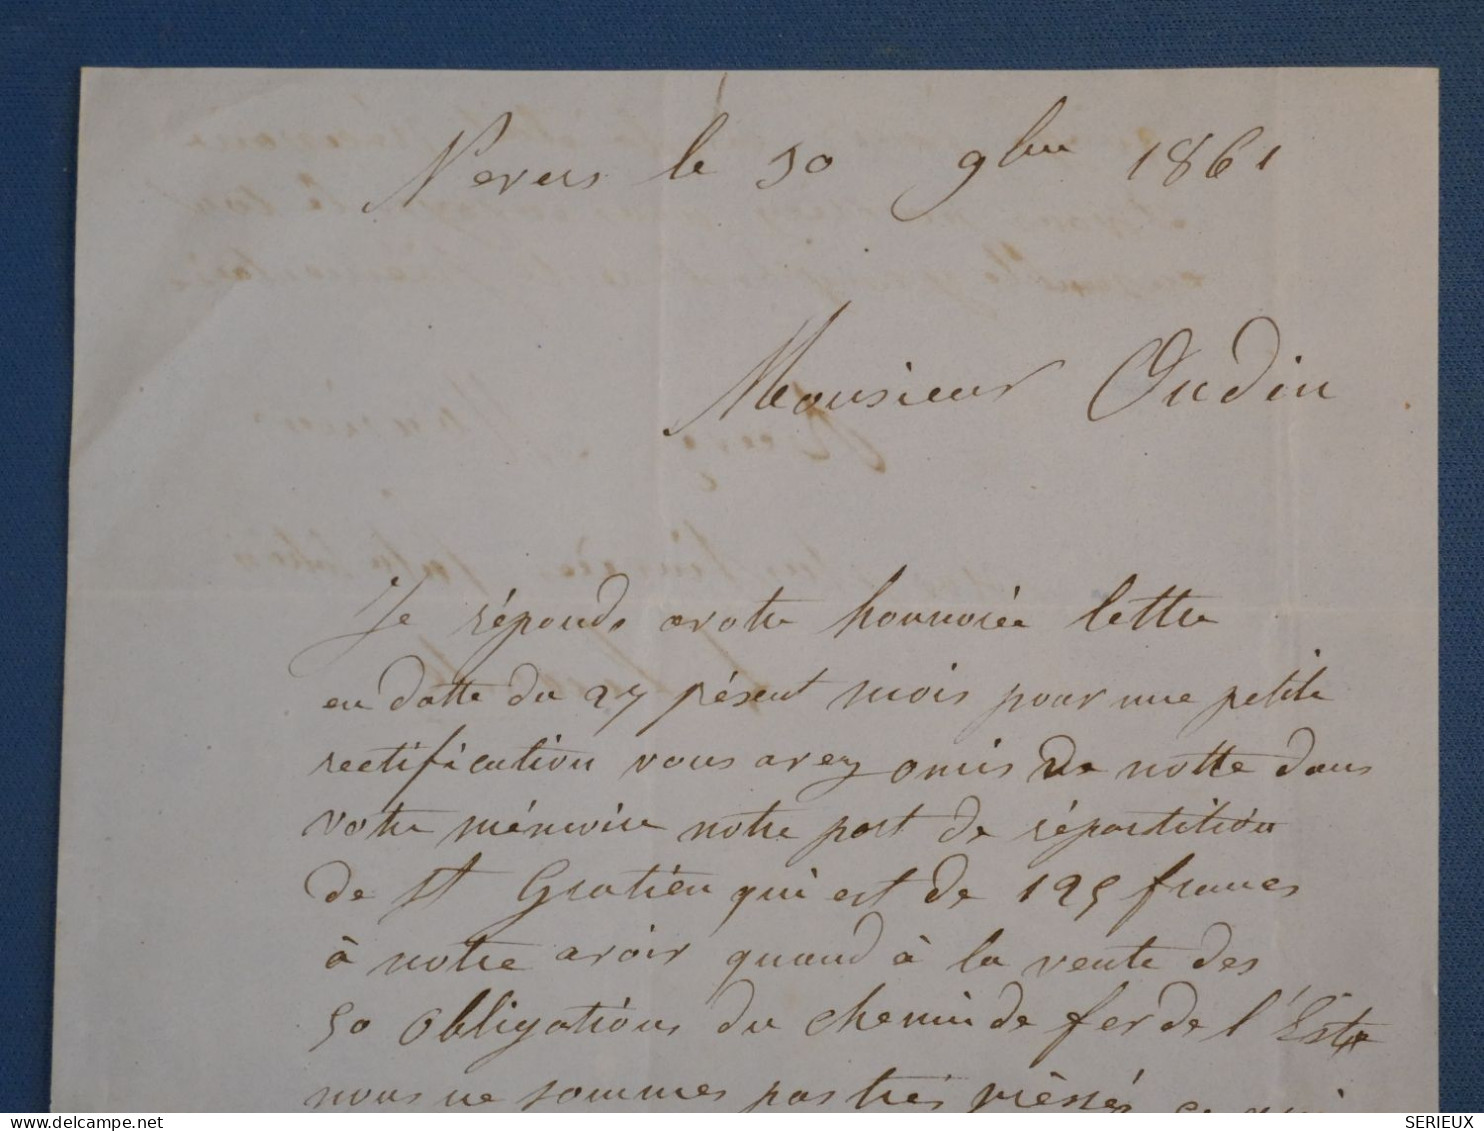 Nevers le 30 9bre 1861
Monsieur Oudin
Je réponds avotre honnorée lettre
en datte du 27 présent mois pour une petite
rectification vous avez omis de notte dans
votre mémoire notre part de répartition
de St Gratien qui est de 195 francs
à notre avoir quand à la vente des
50 obligations du chemin de fer de l'Est
nous ne sommes pas très préssés ce qui
SERIEUX